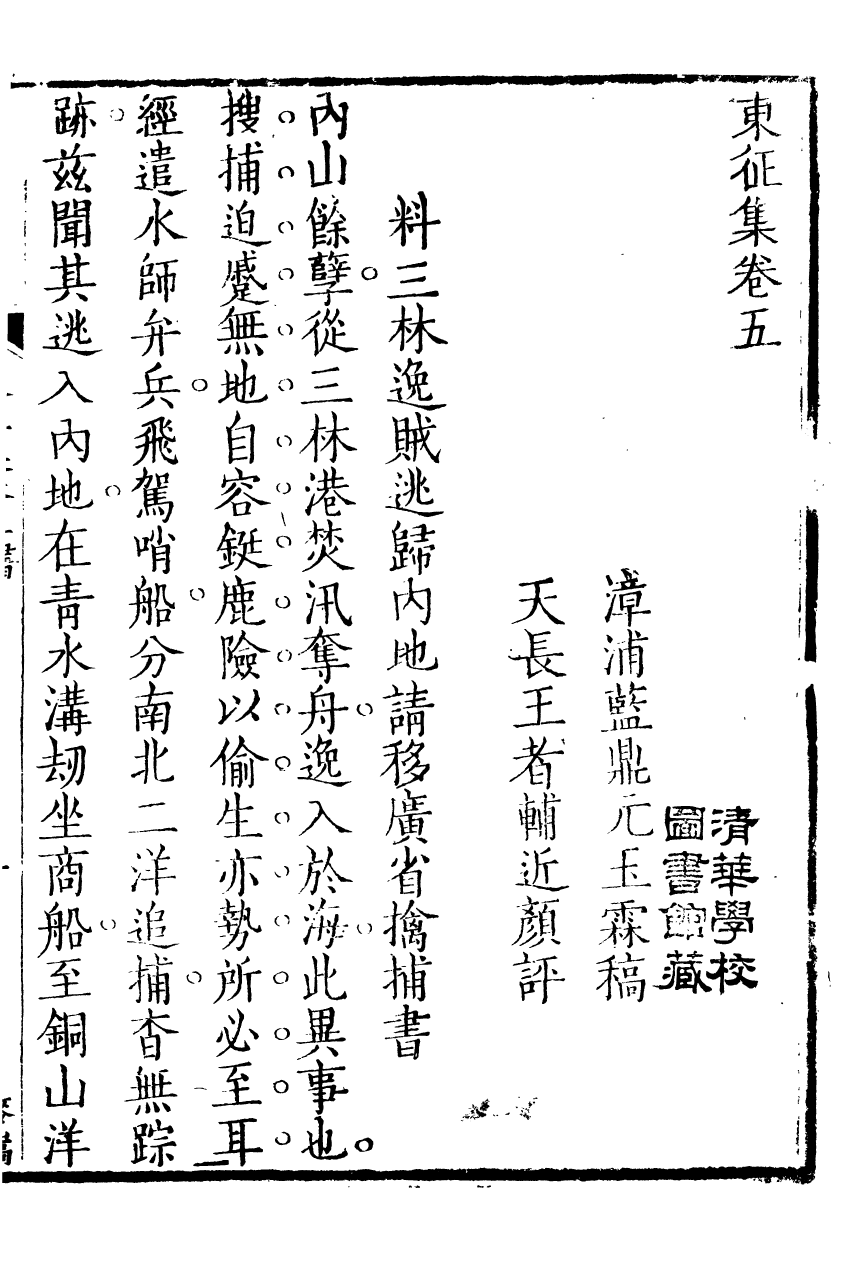 東征集卷五
清華學校
圖書館藏
漳浦藍鼎元玉霖稿
天長王者輔近顏評
料三林逸賊逃歸內地請移廣省擒捕書
內山餘孽從三林港焚汛奪舟逸入於海此異事也
搜捕迫蹙無地自容鋌鹿險以偷生亦勢所必至耳
經遣水師弁兵飛駕哨船分南北二洋追捕杳無踪
跡茲聞其逃入內地在青水溝刼坐商船至銅山洋